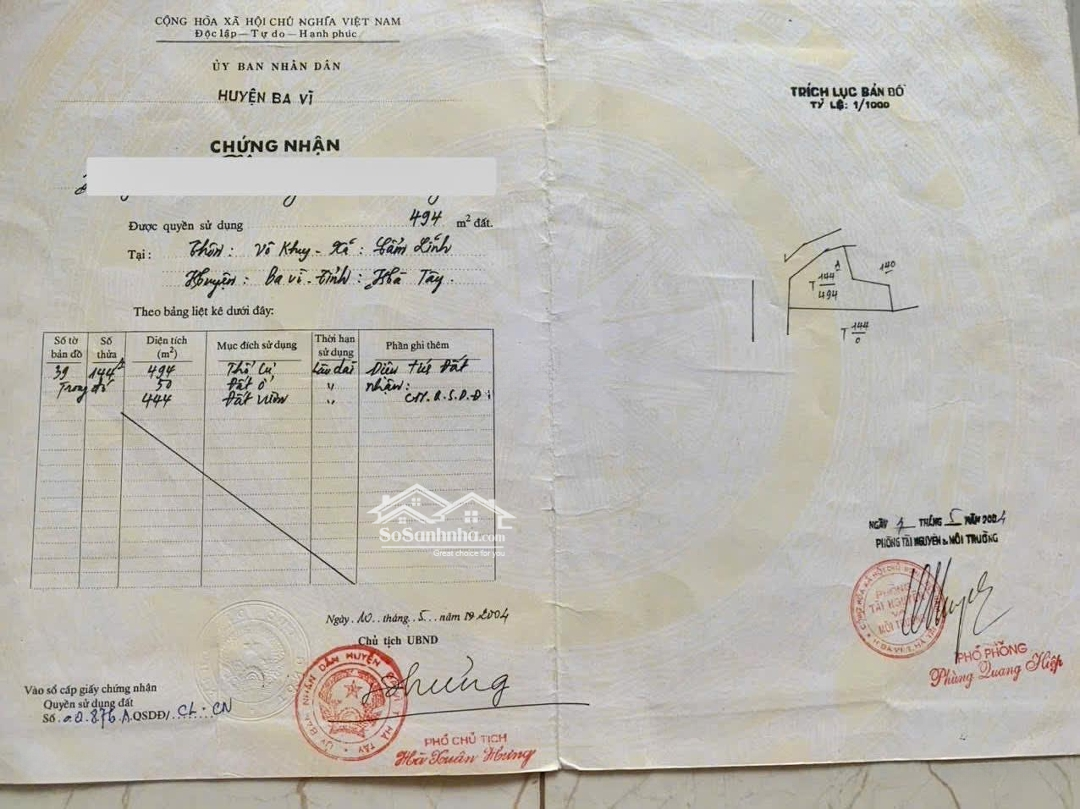 CỘNG HÒA XÃ HỘI CHỦ NGHĨA VIỆT NAM
Độc lập — Tự do — Hạnh phúc
ỦY BAN NHÂN DÂN
HUYỆN BA VÌ
CHỨNG NHẬN
Được quyền sử dụng 494 m² đất.
Tại : Thôn : Vô Khuy - Xã : Cẩm Lĩnh
Huyện : Ba vì - tỉnh : Hà Tây.
Theo bảng liệt kê dưới đây:
Số tờ bản đồ Số thửa Diện tích (m²) Mục đích sử dụng Thời hạn sử dụng Phần ghi thêm
39 144A 494 Thổ cư Lâu dài Diện tích Đất
Trong đó 50 Đất ở " nhận :
444 Đất vườn " CN.Q.S.D.Đ
SoSanhnha.com
Great choice for you
Ngày 10 tháng 5 năm 19 2004
Chủ tịch UBND
Vào sổ cấp giấy chứng nhận
Quyền sử dụng đất
Số 00.876.A.QSDĐ/ CL-CN
PHÓ CHỦ TỊCH
Hà Xuân Hưng
TRÍCH LỤC BẢN ĐỒ
TỶ LỆ: 1/1000
A
T 144
494
140
T 144
0
NGÀY 7 THÁNG 5 NĂM 2004
PHÒNG TÀI NGUYÊN & MÔI TRƯỜNG
PHÒNG
TÀI NGUYÊN
MÔI TRƯỜNG
PHÓ PHÒNG
Phùng Quang Hiệp